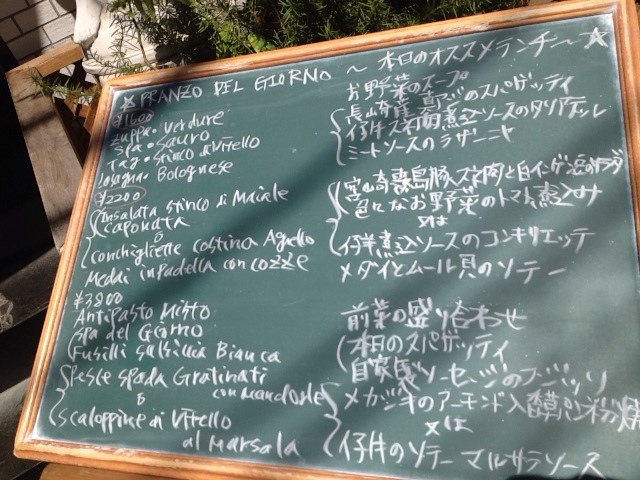 ☆ PRANZO DEL GIORNO ～ 本日のオススメランチ～ ☆
¥1600
zuppa verdure お野菜のスープ
spa. sauro 長崎産真アジのスパゲッティ
Tag. stinco di Vitello 仔牛スネ肉煮込ソースのタリアテッレ
Lasagna Bolognese ミートソースのラザニヤ
¥2200
insalata stinco di Maiale 宮崎霧島豚スネ肉と白インゲン豆のサラダ
caponata 色々なお野菜のトマト煮込み
o 又は
conchigliette costina Agnello 仔羊煮込ソースのコンキリエッテ
Medai in padella con cozze メダイとムール貝のソテー
¥3800
Antipasto Misto 前菜の盛り合わせ
spa del Giorno 本日のスパゲッティ
Fusilli salsiccia Bianca 自家製ソーセージのフジッリ
Pesce spada Gratinati メカジキのアーモンド入香草パン粉焼
con Mandorle
o 又は
Scaloppine di Vitello
al Marsala 仔牛のソテー マルサラソース